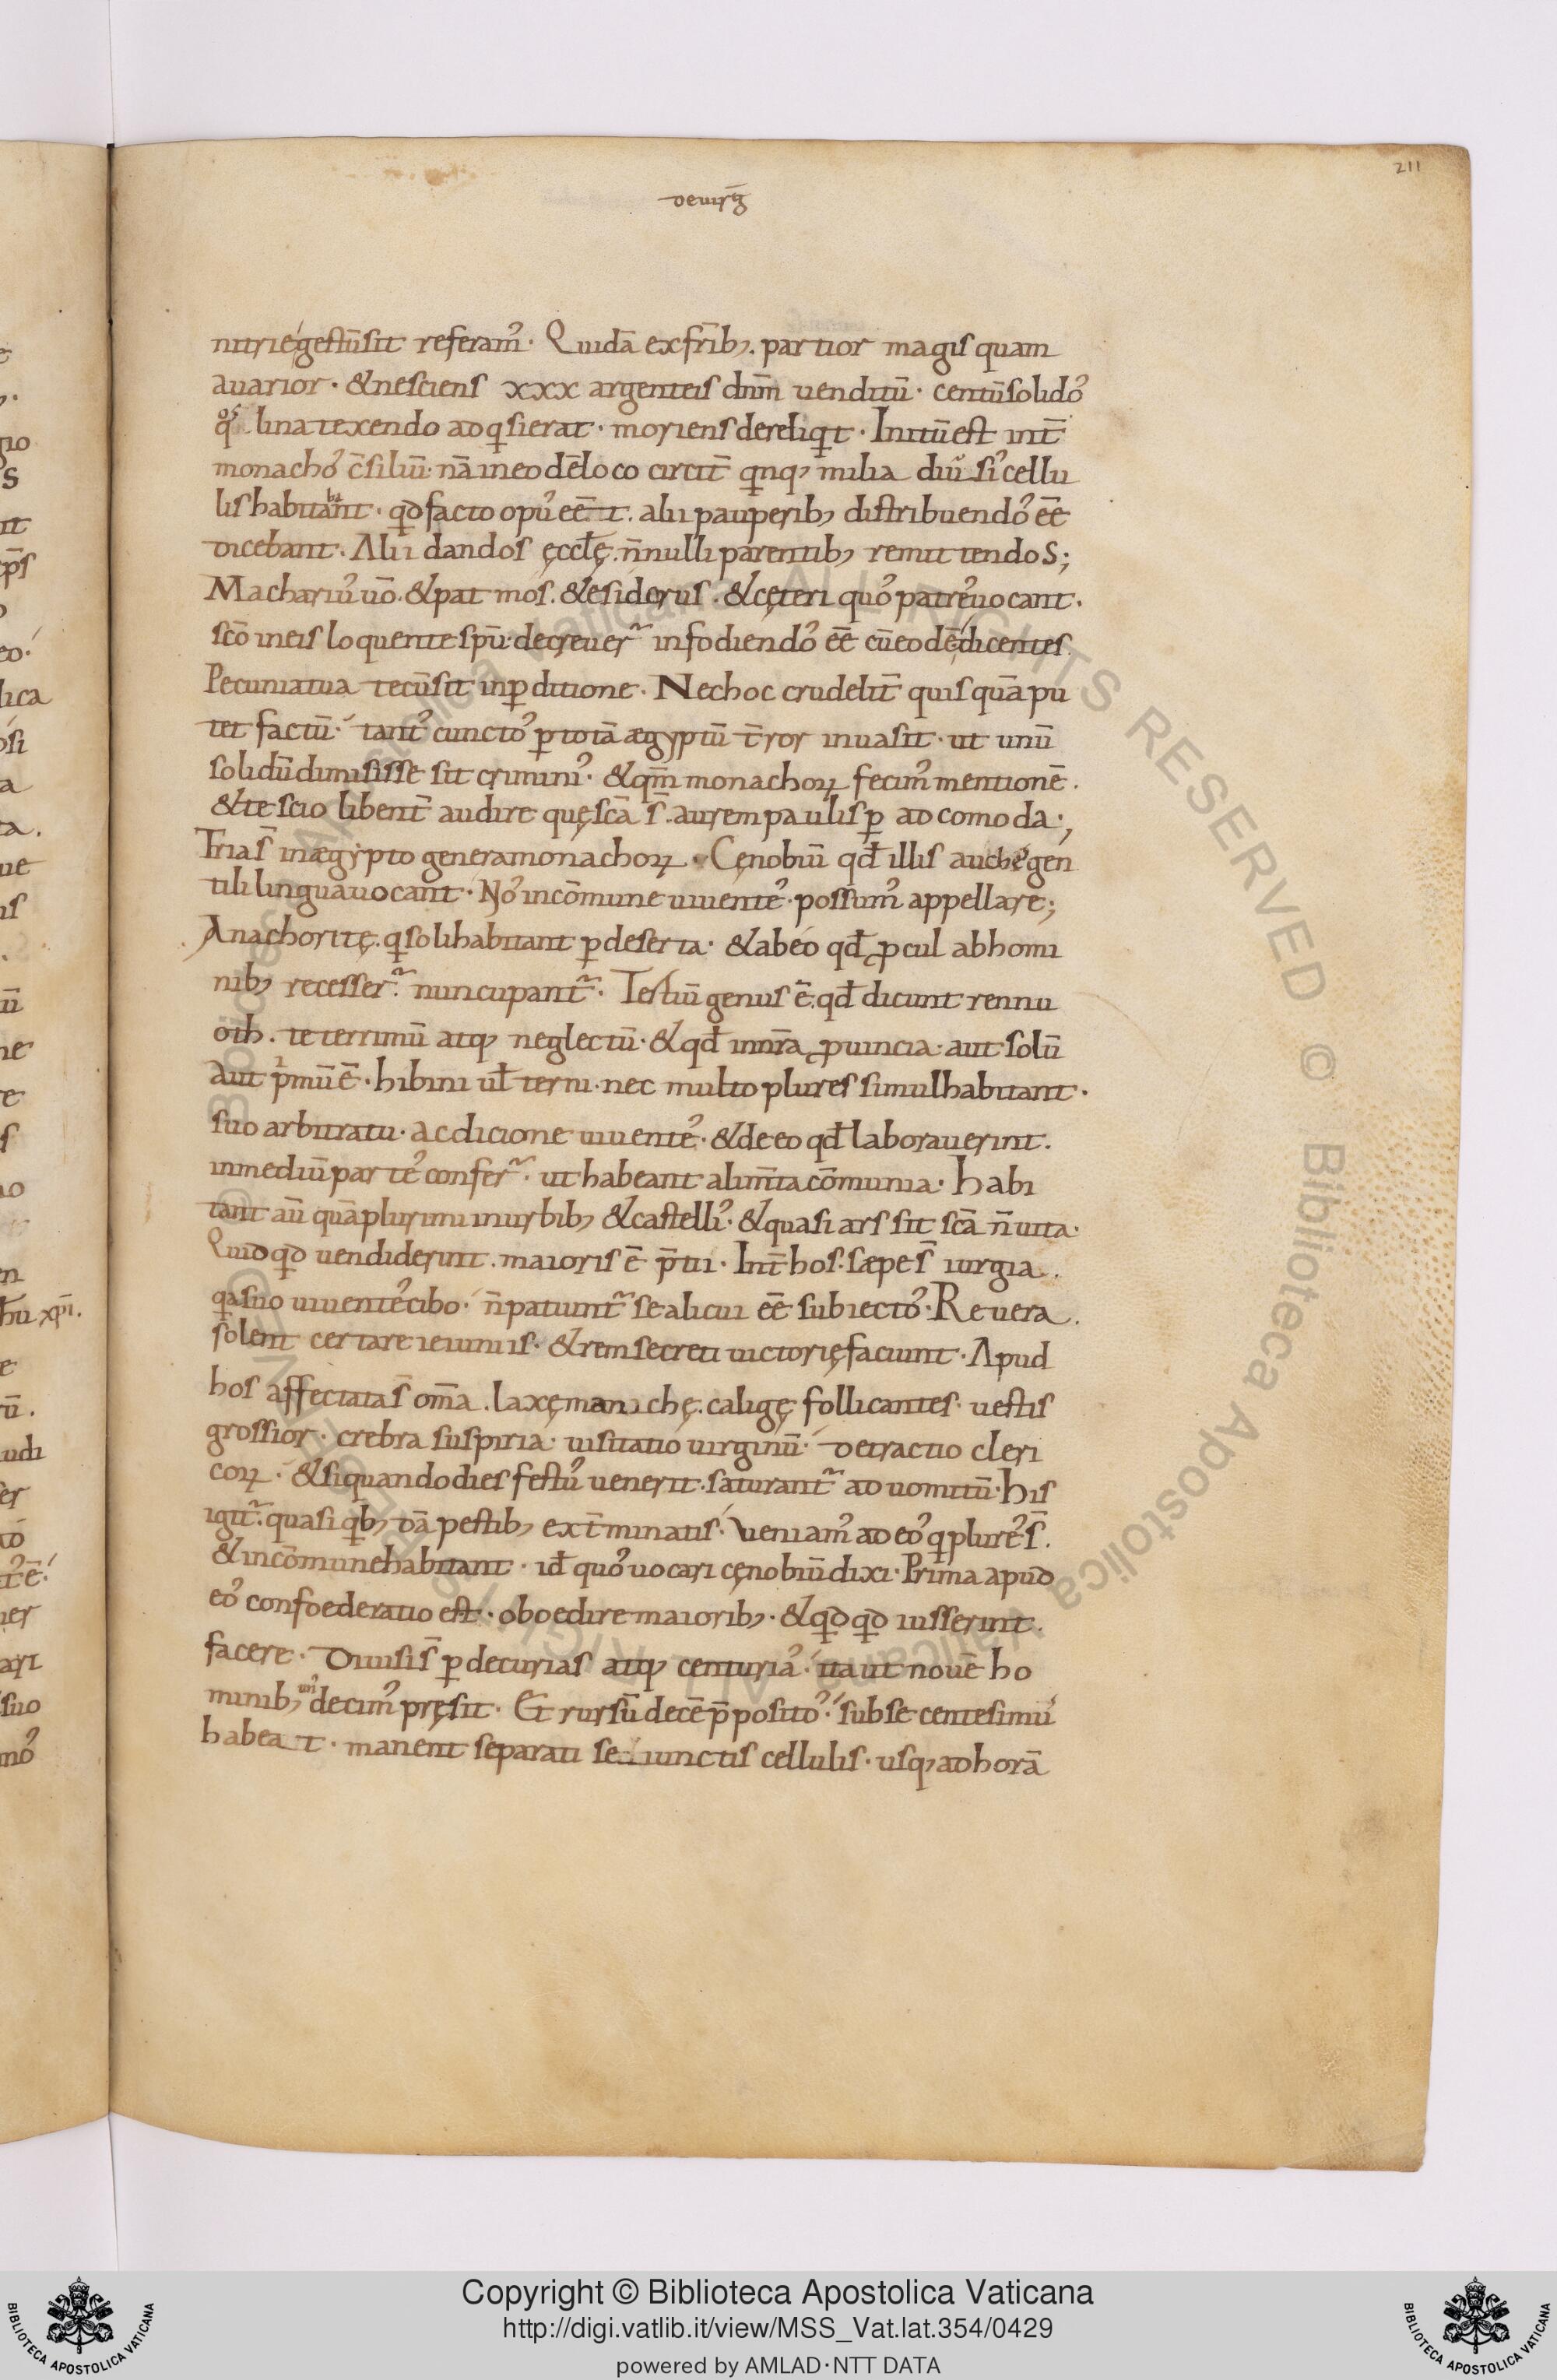 211
de uirḡ
nitrię gestū sit referam᾽. Quidā ex fr̄ib; partior magis quam
auarior. & nesciens xxx argenteis dn̄m uenditū. centū solido᾽
q᷒os lina texendo adq̣sierat. moriens dereliqt. Initū est int̄
monacho᾽ c̄siliū. nā in eodē loco circit̄ qnq; milia diuīsi᾽ cellu
lis habitabant. qd facto opu᾽ eēt. alii pauperib; distribuendo᾽ eē
dicebant. Alii dandos ęccłę. n̄nulli parentib; remittendos;
Machariu᾽ uō. & patmos. & esiderus. & cęteri quo᾽ patre᾽ uocant.
scō in eis loquente sp̄u. decreuer̃ infodiendo᾽ eē cū eodē dicentes
Pecunia tua tecū sit in ꝑditione. Nec hoc crudelit̄ quisquā pu
tet factū. tant᾽ cuncto᾽ ꝑ totā ægyptū t̄ror inuasit. ut unū
solidū dimisisse sit crimini᾽. & qm̄ monachoꝝ fecim᾽ mentionē.
& te scio libent̄ audire quę scā s̄. aurem paulisꝑ adcomoda;
Tria s̄ in ægypto genera monachoꝝ. Cęnobiū qđ illi sauche gen
tili lingua uocant. No᾽ in cōmune uiuente᾽ possum᾽ appellare;
Anachoritę. q soli habitant ꝑ deserta. & ab eo qđ ꝓcul ab homi
nib; recesser̃. nuncupant̃. Tertiū genus ē. qđ dicunt rennu
oth. teterrimū atq; neglectū. & qđ in nr̄a ꝓuincia. aut solū
aut pͥmū ē. hi bini uł terni. nec multo plures simul habitant.
suo arbitratu. ac dicione uiuente᾽. & de eo qđ laborauerint.
in mediū parte᾽ confer̃. ut habeant alim̄ta cōmunia. habi
tant aū quā plurimi in urbib; & castelli᾽. & quasi ars sit scā n̄ uita.
Quidqd uendiderint. maioris ē p̄tii. Int̄ hos. sæpe s̄ iurgia.
qa suo uiuente᾽ cibo. n̄ patiunt̃ se alicui eē subiecto᾽. Reuera.
solent certare ieiuniis. & rem secreti uictorię faciunt. Apud
hos affectata s̄ om̄a. laxę manichę. caligę follicantes. uestis
grossior. crebra suspiria. uisitatio uirginū. detractio cleri
coꝝ. & si quando dies festu᾽ uenerit. saturant̃ ad uomitū. his
igit̃. quasi qb;dā pestib; ext̄minatis. ueniam᾽ ad eo᾽ q plure᾽ s̄.
& in cōmune habitant. iđ quo᾽ uocari cęnobiū dixi. Prima apud
eo᾽ confoederatio est. oboedire maiorib;. & qdqd iusserint.
facere. Diuisi s̄ ꝑ decurias atq; centuria᾽. ita ut nouē ho
minib; decim᾽ pręsit. Et rursū decē p̄posito᾽. sub se centesimu᾽
habeat. manent separati seiunctis cellulis. usq; ad horā
Copyright © Biblioteca Apostolica Vaticana
http://digi.vatlib.it/view/MSS_Vat.lat.354/0429
powered by AMLAD·NTT DATA